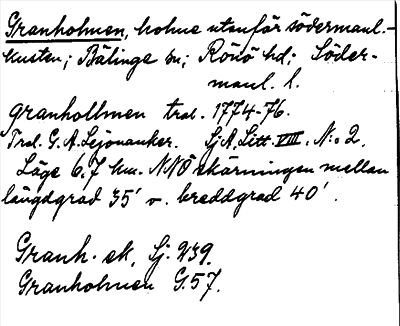 Granholmen, holme utanför södermanl.-
kusten; Bälinge sn; Rönö hd; Söder-
manl. l.
granhollmen trol. 1774-76.
Trol. G. A. Lejonanker. SjA. Litt. VIII. N:o 2.
Läge 6.7 km. NNÖ skärningen mellan
längdgrad 35' o. breddgrad 40'.
Granh. ek. Sj. 239.
Granholmen G.57.